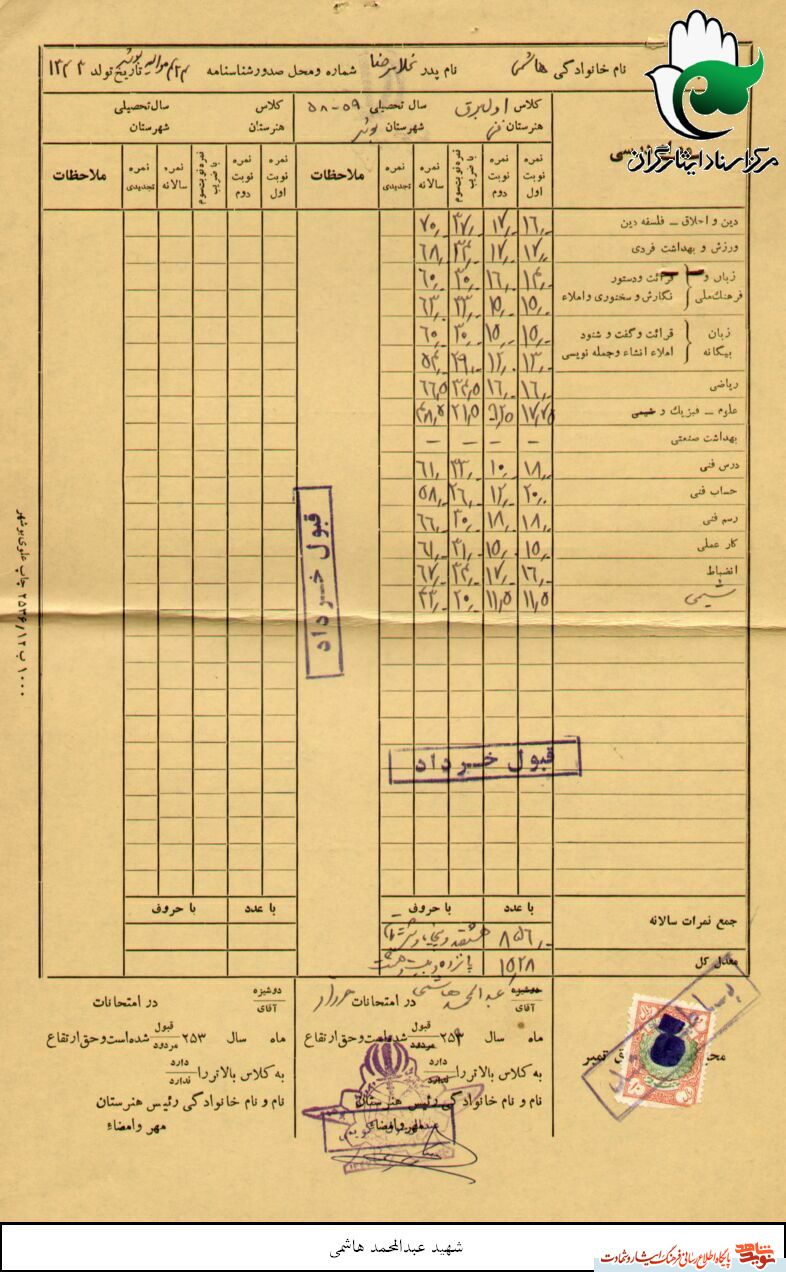 مرکز اسناد ایثارگران
نام خانوادگی هاشمی نام پدر غلامرضا شماره ومحل صدورشناسنامه تاریخ تولد
کلاس اول برق سال تحصیلی ۵۹-۵۸ کلاس سال تحصیلی
هنرستان فنی شهرستان بوشهر هنرستان شهرستان
نمره نوبت اول نمره نوبت دوم نمره نوبت سوم با ضریب نمره سالانه نمره تجدیدی ملاحظات نمره نوبت اول نمره نوبت دوم نمره نوبت سوم با ضریب نمره سالانه نمره تجدیدی ملاحظات
دین و اخلاق - فلسفه دین ۱۶٫- ۱۷٫- ۳۷٫- ۷۰٫-
ورزش و بهداشت فردی ۱۷٫- ۱۷٫- ۳۴٫- ۶۸٫-
زبان و فرهنگ ملی
قرائت ودستور ۱۴٫- ۱۶٫- ۳۰٫- ۶۰٫-
نگارش و سخنوری و املاء ۱۵٫- ۱۵٫- ۳۳٫- ۶۳٫-
زبان بیگانه
قرائت و گفت و شنود ۱۵٫- ۱۵٫- ۳۰٫- ۶۰٫-
املاء انشاء و جمله نویسی ۱۳٫- ۱۲٫- ۲۹٫- ۵۴٫-
ریاضی ۱۶٫- ۱۶٫- ۳۴٫۵ ۶۶٫۵
علوم - فیزیک و شیمی ۱۷٫۷۵ ۹٫۲۵ ۲۱٫۵ ۴۸٫۵
بهداشت صنعتی - - - -
درس فنی ۱۸٫- ۱۰٫- ۳۳٫- ۶۱٫-
حساب فنی ۲۰٫- ۱۲٫- ۲۶٫- ۵۸٫-
رسم فنی ۱۸٫- ۱۸٫- ۳۰٫- ۶۶٫-
کار عملی ۱۵٫- ۱۵٫- ۳۱٫- ۶۱٫-
انضباط ۱۶٫- ۱۷٫- ۳۴٫- ۶۷٫-
شیمی ۱۱٫۵ ۱۱٫۵ ۲۰٫- ۴۳٫-
قبول خرداد
قبول خرداد
با عدد با حروف با عدد با حروف
جمع نمرات سالانه ۸۵۶٫- هشتصد و پنجاه و شش تمام
معدل کل ۱۵٫۲۸ پانزده و بیست و هشت
دوشیزه آقای عبدالمحمد هاشمی در امتحانات خرداد
ماه سال ۲۵۳ قبول مردود شده است و حق ارتقاع
به کلاس بالاتر را دارد ندارد
نام و نام خانوادگی رئیس هنرستان
مهر وامضاء
دوشیزه آقای در امتحانات
ماه سال ۲۵۳ قبول مردود شده است و حق ارتقاع
به کلاس بالاتر را دارد ندارد
نام و نام خانوادگی رئیس هنرستان
مهر وامضاء
تمبر
۱۰۰۰ ب ۲۵۳۶/۱۲ چاپ علوی بوشهر
شهید عبدالمحمد هاشمی
نوید شاهد
پایگاه اطلاع رسانی فرهنگ ایثار و شهادت